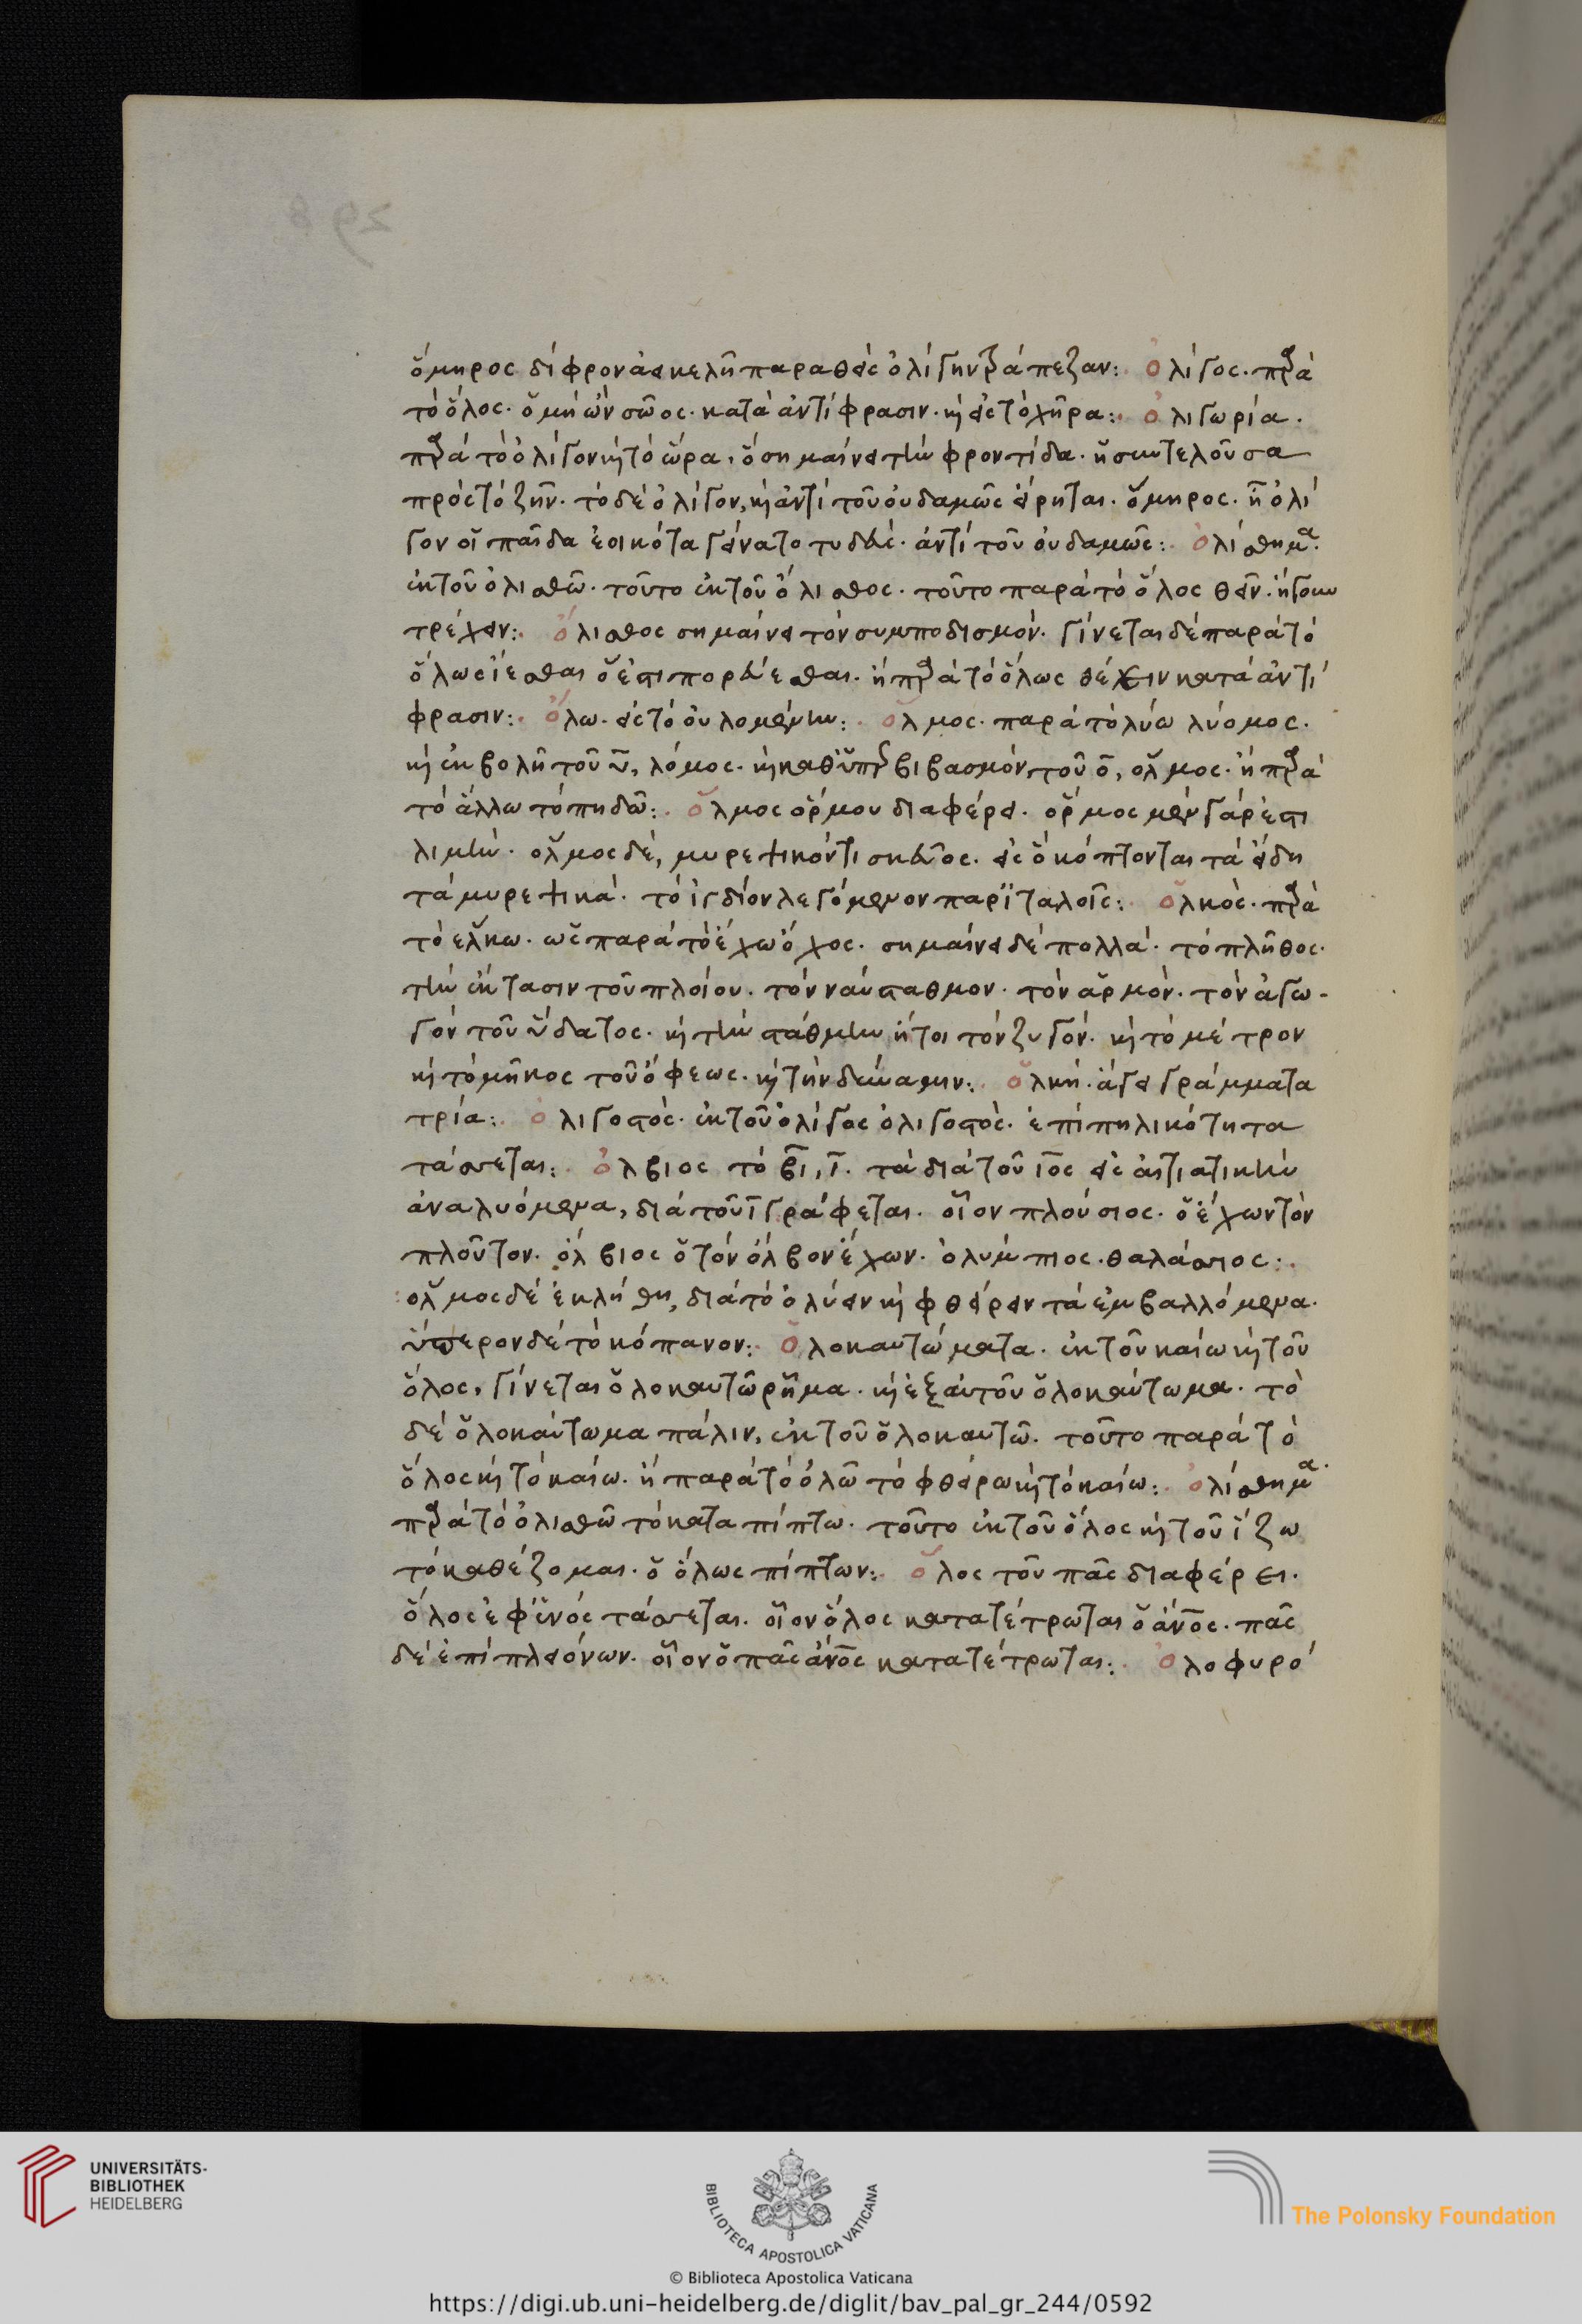 ὅμηρος δίφρον ἀεικελῆ παραθεὶς ὀλίγην τράπεζαν: ὀλίγος. παρὰ
τὸ ὅλος. ὁ μὴ ὢν σῶος. κατὰ ἀντίφρασιν. καὶ εἰς τὸ χῆρα: ὀλιγωρία.
παρὰ τὸ ὀλίγον καὶ τὸ ὤρα, ὃ σημαίνει τὴν φροντίδα. ἡ συντελοῦσα
πρὸς τὸ ζῆν. τὸ δὲ ὀλίγον, καὶ ἀντὶ τοῦ οὐδαμῶς εἴρηται. ὅμηρος. ἢ ὀλί
γον οἷ παῖδα ἐοικότα γείνατο τυδεύς. ἀντὶ τοῦ οὐδαμῶς: ὀλίσθημα.
ἐκ τοῦ ὀλισθῶ. τοῦτο ἐκ τοῦ ὄλισθος. τοῦτο παρὰ τὸ ὅλος θεῖν. ἤγουν
τρέχειν: ὄλισθος σημαίνει τὸν συμποδισμόν. γίνεται δὲ παρὰ τὸ
ὅλως ἵεσθαι ὅ ἐστι πορεύεσθαι. ἢ παρὰ τὸ ὅλως κατὰ ἀντί
φρασιν: ὄλω. εἰς τὸ οὐλομένην: ὅλμος. παρὰ τὸ λύω λύομος.
καὶ ἐκβολῆ τοῦ υ, λόμος. καὶ καθ' ὑπερβιβασμὸν τοῦ ο, ὅλμος. ἢ παρὰ
τὸ ἅλλω τὸ πηδῶ: ὅλμος ὅρμου διαφέρει. ὅρμος μὲν γάρ ἐστι
λιμήν. ὅλμος δὲ, μυρεψικόν τι σκεῦος. εἰς ὃ κόπτονται τὰ εἴδη
τὰ μυρεψικά. τὸ ἰγδίον λεγόμενον παρ' ἰταλοῖς: ὁλκός. παρὰ
τὸ ἕλκω. ὡς παρὰ τὸ ἔχω ὄχος. σημαίνει δὲ πολλά. τὸ πλῆθος.
τὴν ἔκτασιν τοῦ πλοίου. τὸν ναύσταθμον. τὸν ἁρμόν. τὸν ἀγω-
γὸν τοῦ ὕδατος. καὶ τὴν στάθμην ἤτοι τὸν ζυγόν. καὶ τὸ μέτρον
καὶ τὸ μῆκος τοῦ ὄφεως. καὶ τὴν δύναμιν: ὁλκή. ἄγει γράμματα
τρία: ὀλιγοστός. ἐκ τοῦ ὀλίγος ὀλιγοστός. ἐπὶ πηλικότητα
τάσσεται: ὄλβιος τὸ βι, ι. τὰ διὰ τοῦ ιος εἰς αἰτιατικὴν
ἀναλυόμενα, διὰ τοῦ ι γράφεται. οἷον πλούσιος. ὁ ἔχων τὸν
πλοῦτον. ὄλβιος ὁ τὸν ὄλβον ἔχων. ὀλύμπιος. θαλάσσιος:
ὅλμος δὲ ἐκλήθη, διὰ τὸ ὀλύειν καὶ φθείρειν τὰ ἐμβαλλόμενα.
ὕπερον δὲ τὸ κόπανον: ὁλοκαυτώματα. ἐκ τοῦ καίω καὶ τοῦ
ὅλος, γίνεται ὁλοκαυτῶ ῥῆμα. καὶ ἐξ αὐτοῦ ὁλοκαύτωμα. τὸ
δὲ ὁλοκαύτωμα πάλιν, ἐκ τοῦ ὁλοκαυτῶ. τοῦτο παρὰ τὸ
ὅλος καὶ τὸ καίω. ἢ παρὰ τὸ ὀλῶ τὸ φθείρω καὶ τὸ καίω: ὀλίσθημα.
παρὰ τὸ ὀλισθῶ τὸ καταπίπτω. τοῦτο ἐκ τοῦ ὅλος καὶ τοῦ ἵζω
τὸ καθέζομαι. ὁ ὅλως πίπτων: ὅλος τοῦ πᾶς διαφέρει.
ὅλος ἐφ' ἑνὸς τάσσεται. οἷον ὅλος κατατέτρωται ὁ ἄνος. πᾶς
δὲ ἐπὶ πλειόνων. οἷον ὁ πᾶς ἄνος κατατέτρωται: ὀλοφυρό
UNIVERSITÄTS-
BIBLIOTHEK
HEIDELBERG
BIBLIOTECA APOSTOLICA VATICANA
The Polonsky Foundation
© Biblioteca Apostolica Vaticana
https://digi.ub.uni-heidelberg.de/diglit/bav_pal_gr_244/0592